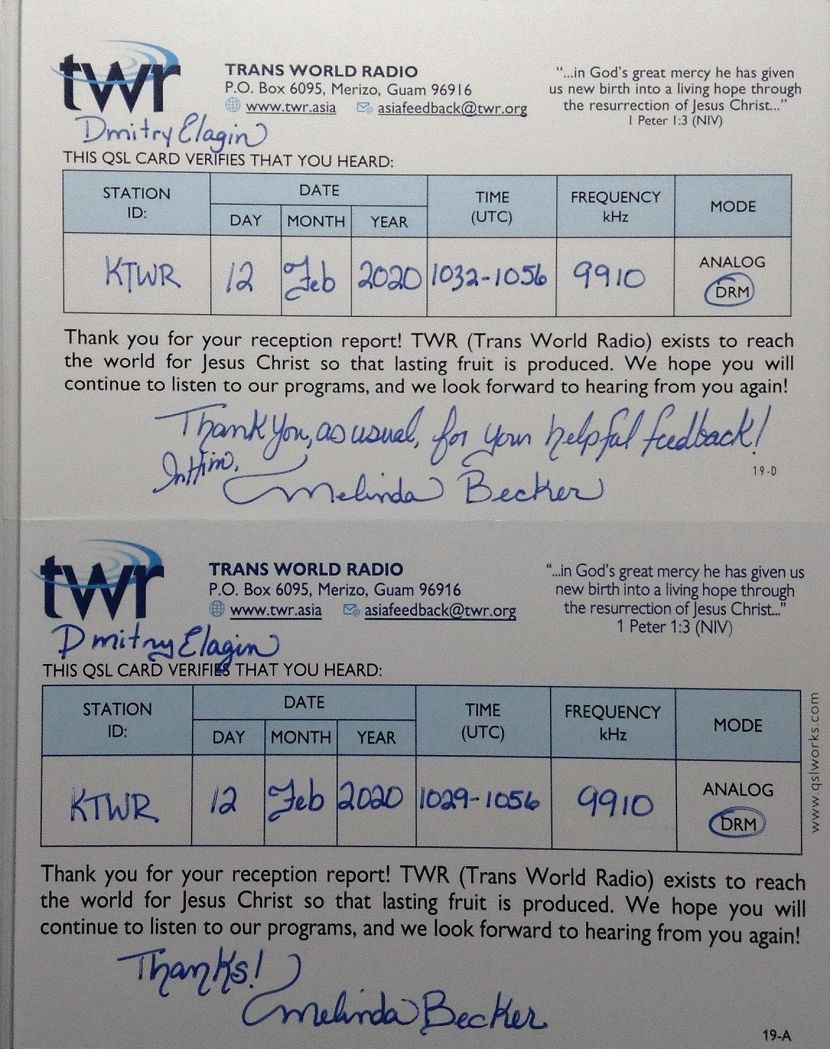 twr
TRANS WORLD RADIO
P.O. Box 6095, Merizo, Guam 96916
www.twr.asia asiafeedback@twr.org
“...in God's great mercy he has given
us new birth into a living hope through
the resurrection of Jesus Christ...”
1 Peter 1:3 (NIV)
Dmitry Elagin
THIS QSL CARD VERIFIES THAT YOU HEARD:
STATION ID: DATE TIME (UTC) FREQUENCY kHz MODE
DAY MONTH YEAR
KTWR 12 Feb 2020 1032-1056 9910 ANALOG
DRM
Thank you for your reception report! TWR (Trans World Radio) exists to reach
the world for Jesus Christ so that lasting fruit is produced. We hope you will
continue to listen to our programs, and we look forward to hearing from you again!
Thank You, as usual, for your helpful feedback!
In Him,
Melinda Becker
19-D
twr
TRANS WORLD RADIO
P.O. Box 6095, Merizo, Guam 96916
www.twr.asia asiafeedback@twr.org
“...in God's great mercy he has given us
new birth into a living hope through
the resurrection of Jesus Christ...”
1 Peter 1:3 (NIV)
Dmitry Elagin
THIS QSL CARD VERIFIES THAT YOU HEARD:
STATION ID: DATE TIME (UTC) FREQUENCY kHz MODE
DAY MONTH YEAR
KTWR 12 Feb 2020 1029-1056 9910 ANALOG
DRM
www.qslworks.com
Thank you for your reception report! TWR (Trans World Radio) exists to reach
the world for Jesus Christ so that lasting fruit is produced. We hope you will
continue to listen to our programs, and we look forward to hearing from you again!
Thanks!
Melinda Becker
19-A